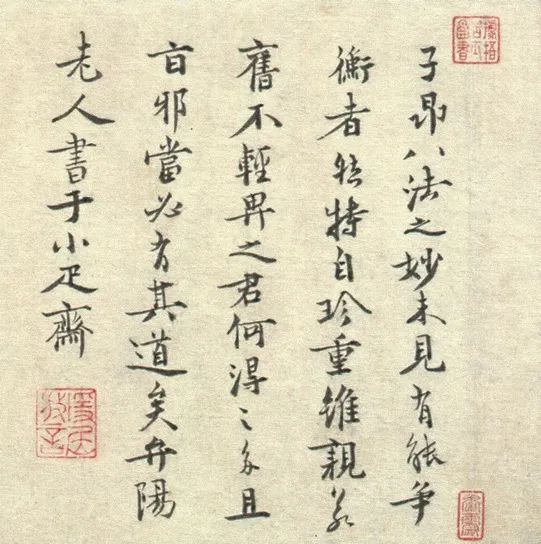 子昂八法之妙未見有能争
衡者然特自珍重雖親若
舊不輕畀之君何淂之多且
旨邪當必有其道矣弁陽
老人書于小疋齋